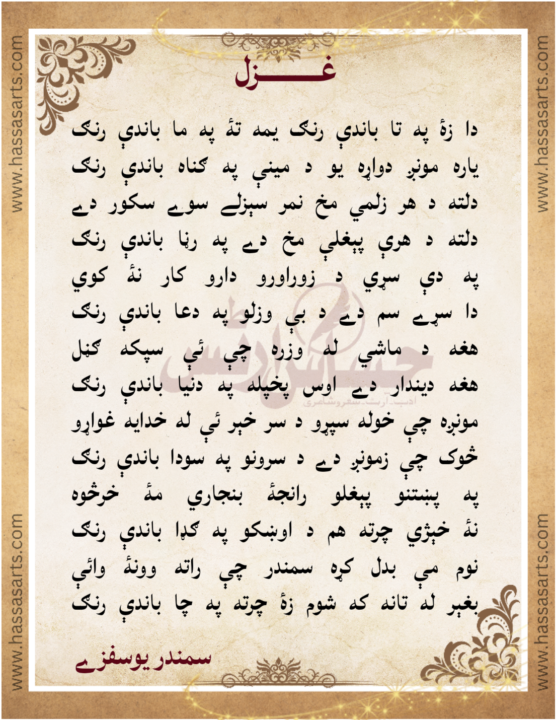 غـــــزل
دا زۀ په تا باندې رنګ يمه تۀ په ما باندې رنګ
ياره مونږ دواړه يو د مينې په ګناه باندې رنګ
دلته د هر زلمي مخ نمر سېزلے سوے سکور دے
دلته د هرې پېغلې مخ دے په رڼا باندې رنګ
په دې سړي د زوراورو دارو کار نۀ کوي
دا سړے سم دے د بې وزلو په دعا باندې رنګ
هغه د ماشي له وزره چې ئې سپکه ګڼل
هغه ديندار دے اوس پخپله په دنيا باندې رنګ
مونږه چې خوله سپړو د سر خبر ئې له خدايه غواړو
څوک چې زمونږ دے د سرونو په سودا باندې رنګ
په پښتنو پېغلو رانجۀ بنجاري مۀ خرڅوه
نۀ خېژي چرته هم د اوښکو په ګډا باندې رنګ
نوم مې بدل کړه سمندر چې راته وونۀ وائې
بغېر له تانه که شوم زۀ چرته په چا باندې رنګ
سمندر يوسفزے
حساس آرٹس
www.hassasarts.com
www.hassasarts.com
www.hassasarts.com
www.hassasarts.com